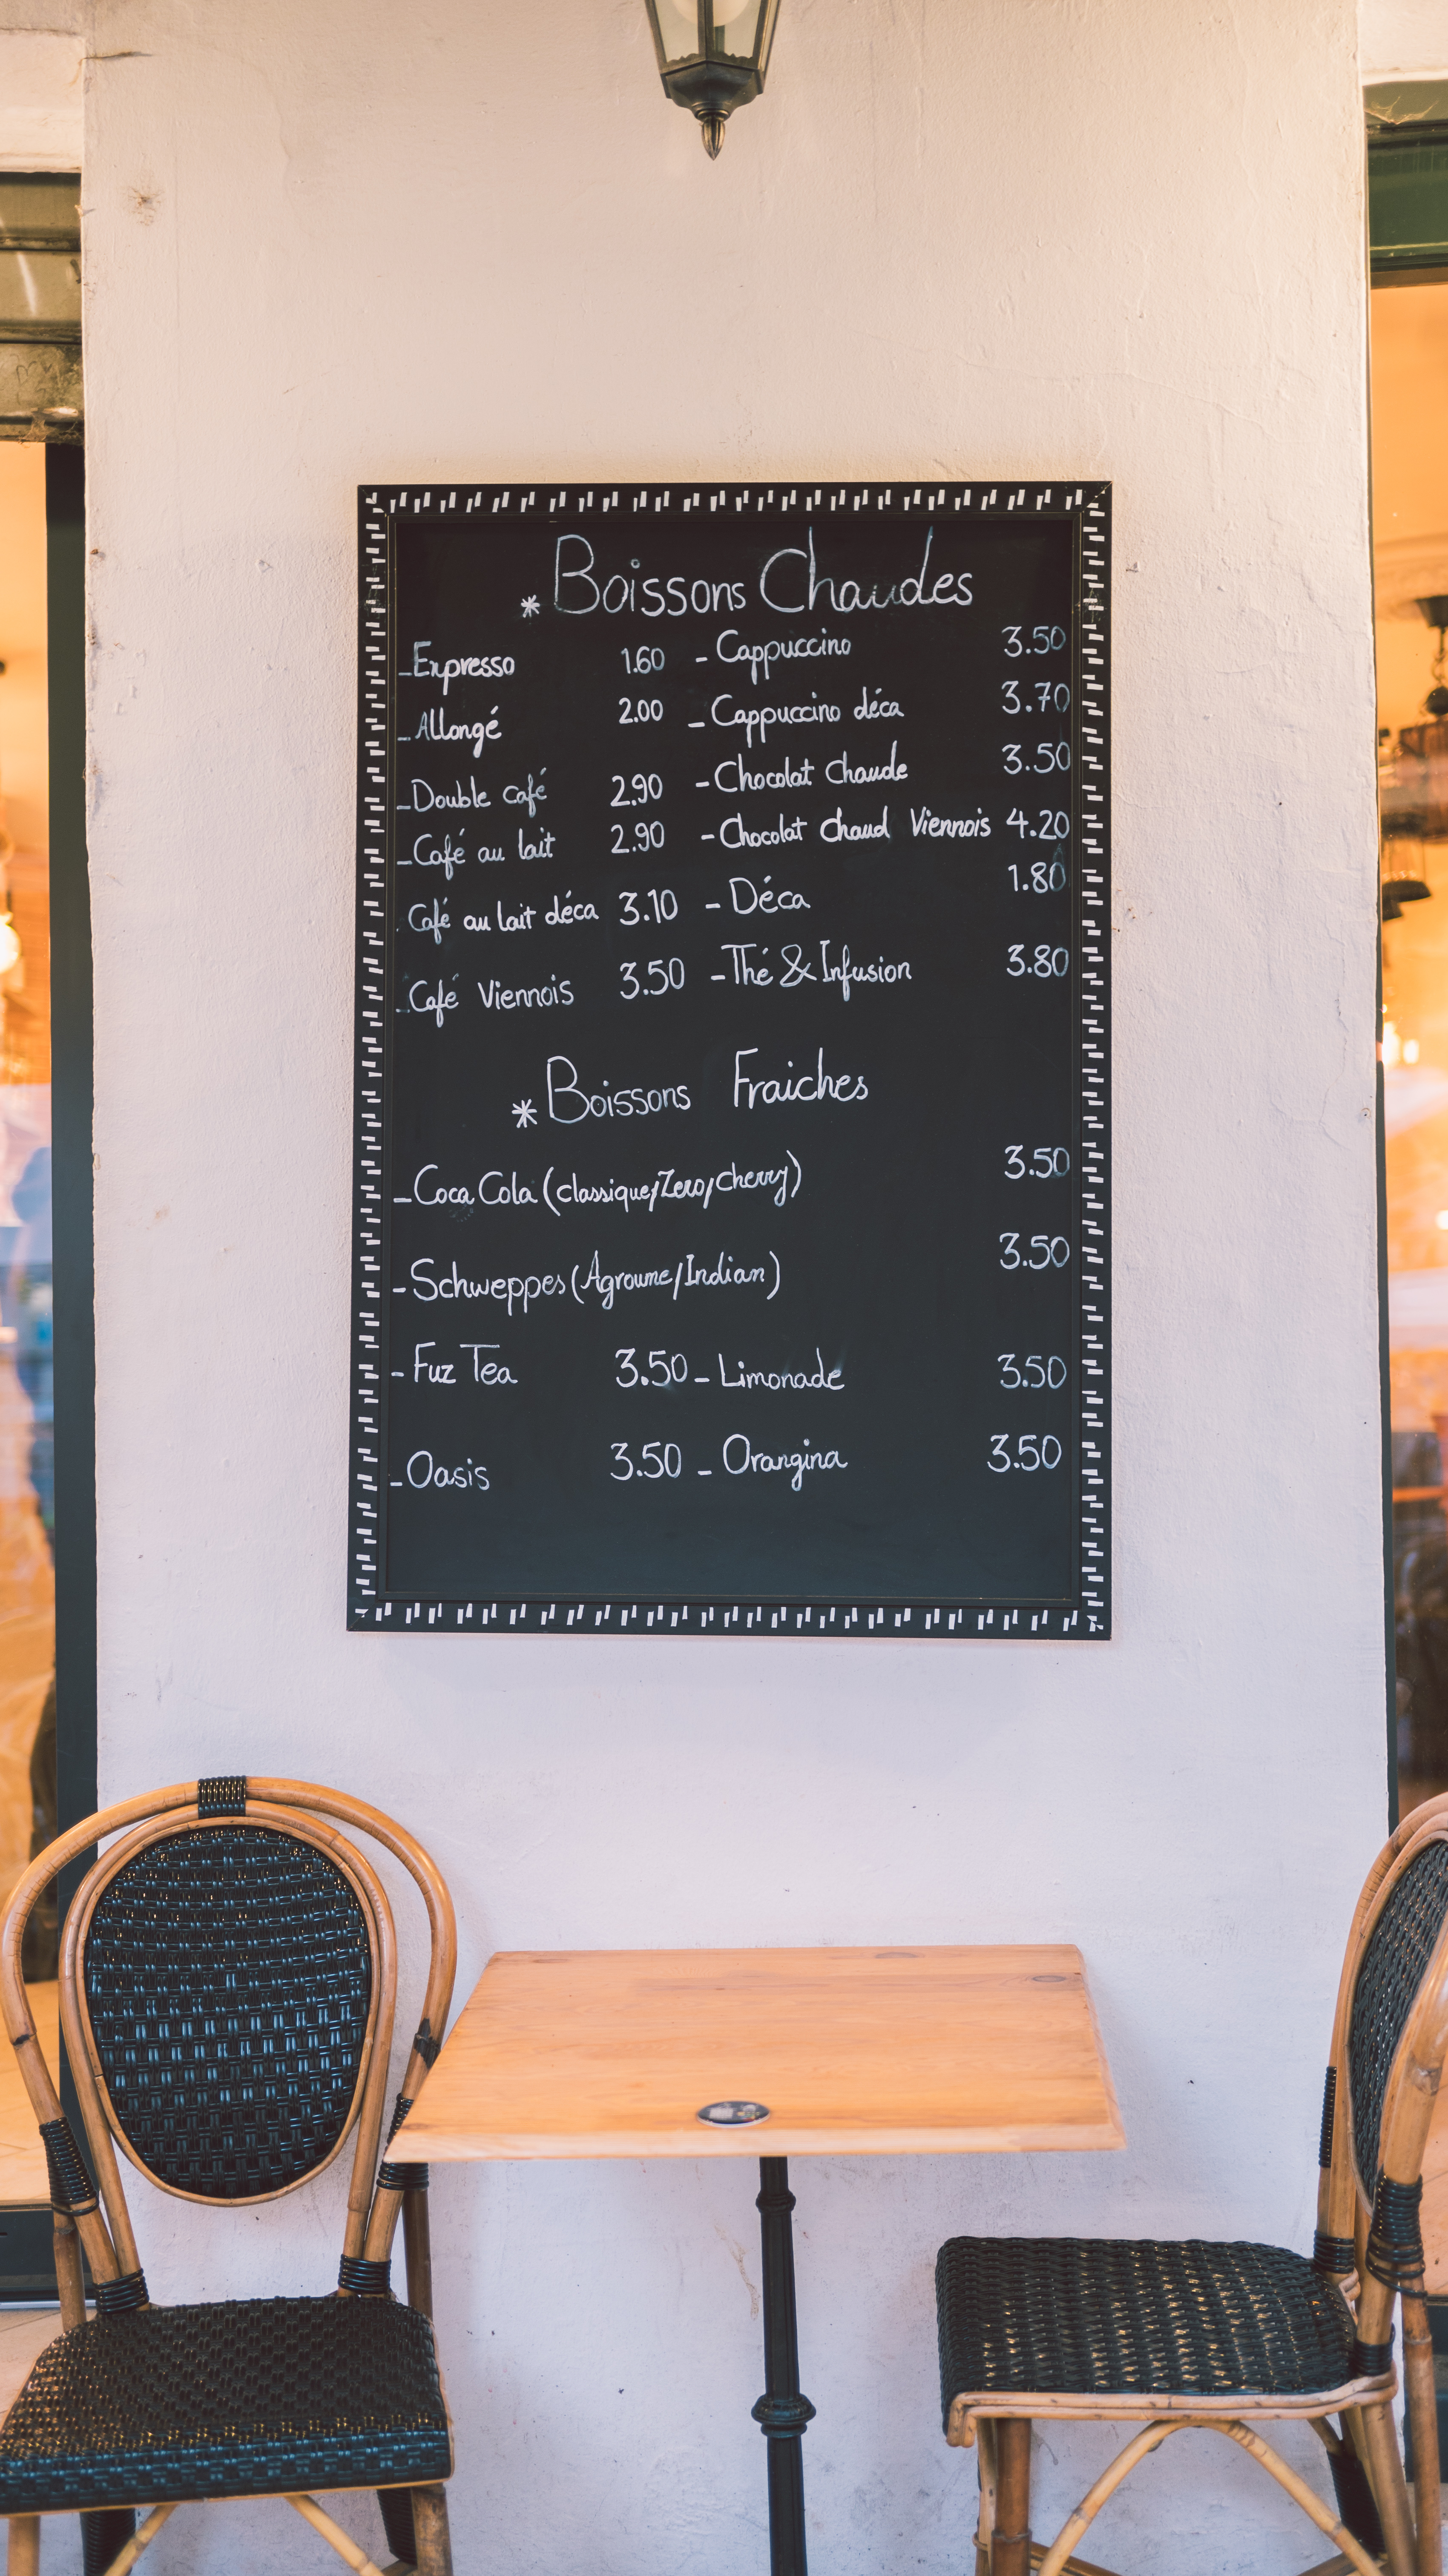 * Boissons Chaudes
- Expresso 1.60 - Cappuccino 3.50
- Allongé 2.00 - Cappuccino déca 3.70
- Double café 2.90 - Chocolat chaude 3.50
- Café au lait 2.90 - Chocolat chaud Viennois 4.20
- Café au lait déca 3.10 - Déca 1.80
- Café Viennois 3.50 - Thé & Infusion 3.80
* Boissons Fraiches
- Coca Cola (classique/Zero/cherry) 3.50
- Schweppes (Agroume/Indian) 3.50
- Fuz Tea 3.50 - Limonade 3.50
- Oasis 3.50 - Orangina 3.50